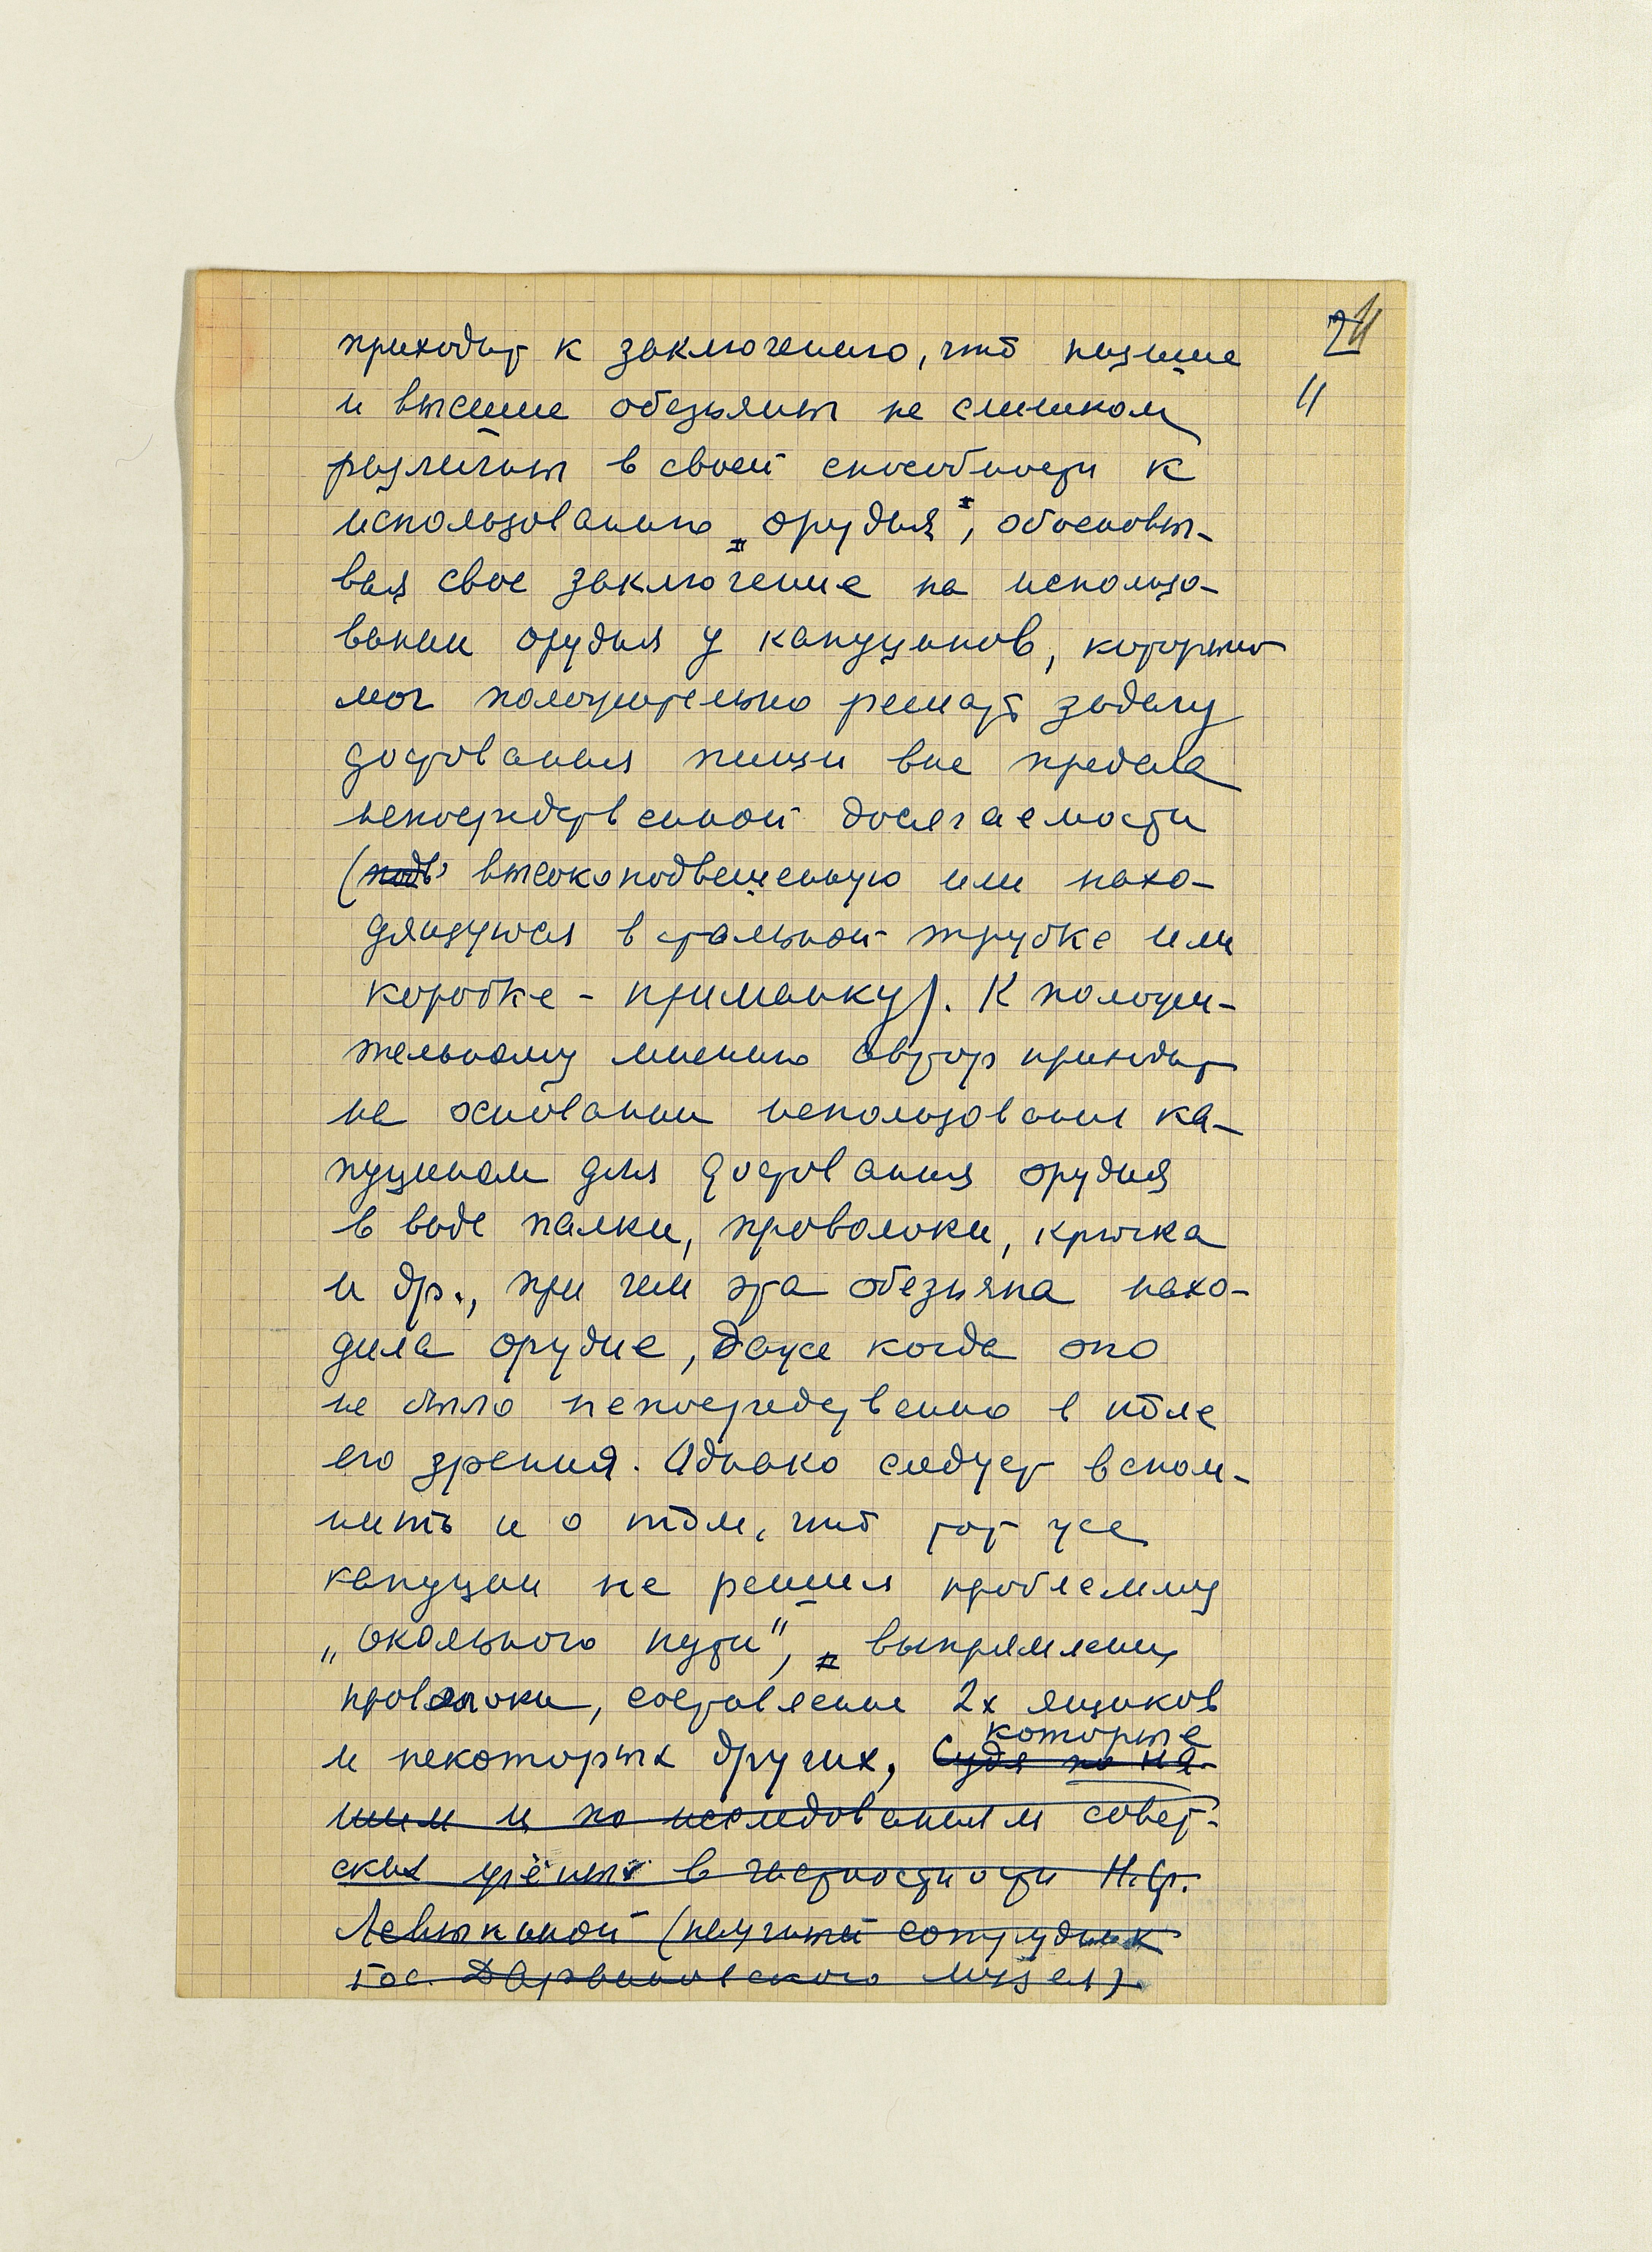 2
11
приходит к заключению, что низшие
и высшие обезьяны не слишком
различны в своей способности к
использованию „орудия“, обосновы-
вая свое заключение на использо-
вании орудия у капуцинов, которые
мог положительно решать задачу
доставания пищи вне предела
непосредственной досягаемости
(подв высокоподвешенную или нахо-
дящуюся в стальной трубке или
коробке - приманку). К положи-
тельному мнению автор приходит
на основании использования ка-
пуцином для доставания орудия
в виде палки, проволоки, крючка
и др., при чем эта обезьяна нахо-
дила орудие, даже когда оно
не было непосредственно в поле
его зрения. Однако следует вспом-
нить и о том, что тот же
капуцин не решил проблемму
„окольного пути“, выпрямления
проволоки, составление 2х ящиков
и некоторых других, которые
Судя по на-
шим и по исследованиям совет-
ских учёных в частности Н.Ф.
Левыкиной (научный сотрудник
Гос. Дарвиновского музея)